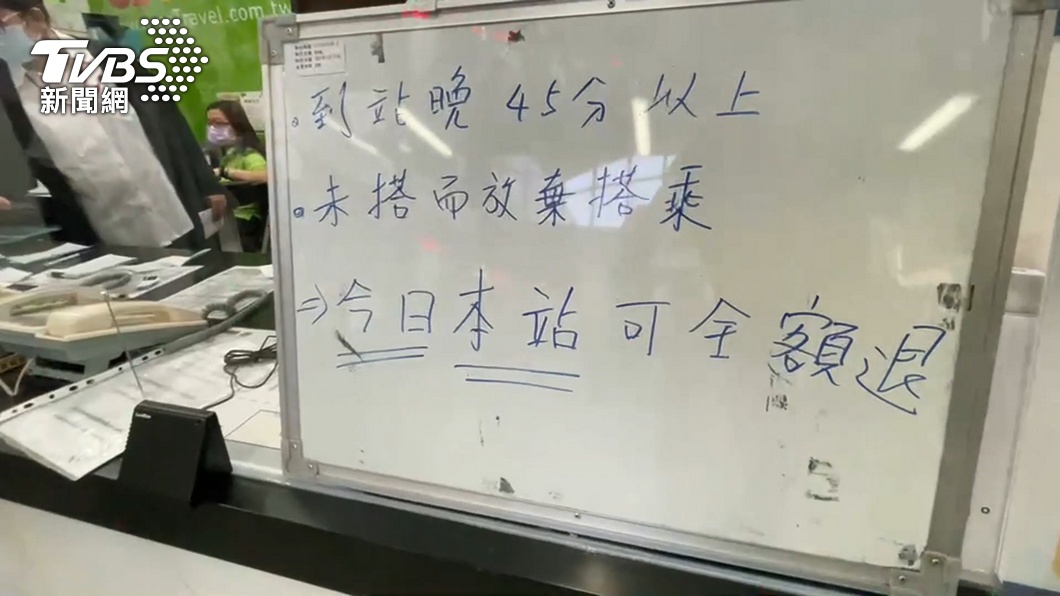 Travel.com.tw
TVBS
新聞網
到站晚 45分以上
未搭而放棄搭乘
⇒今日本站可全額退